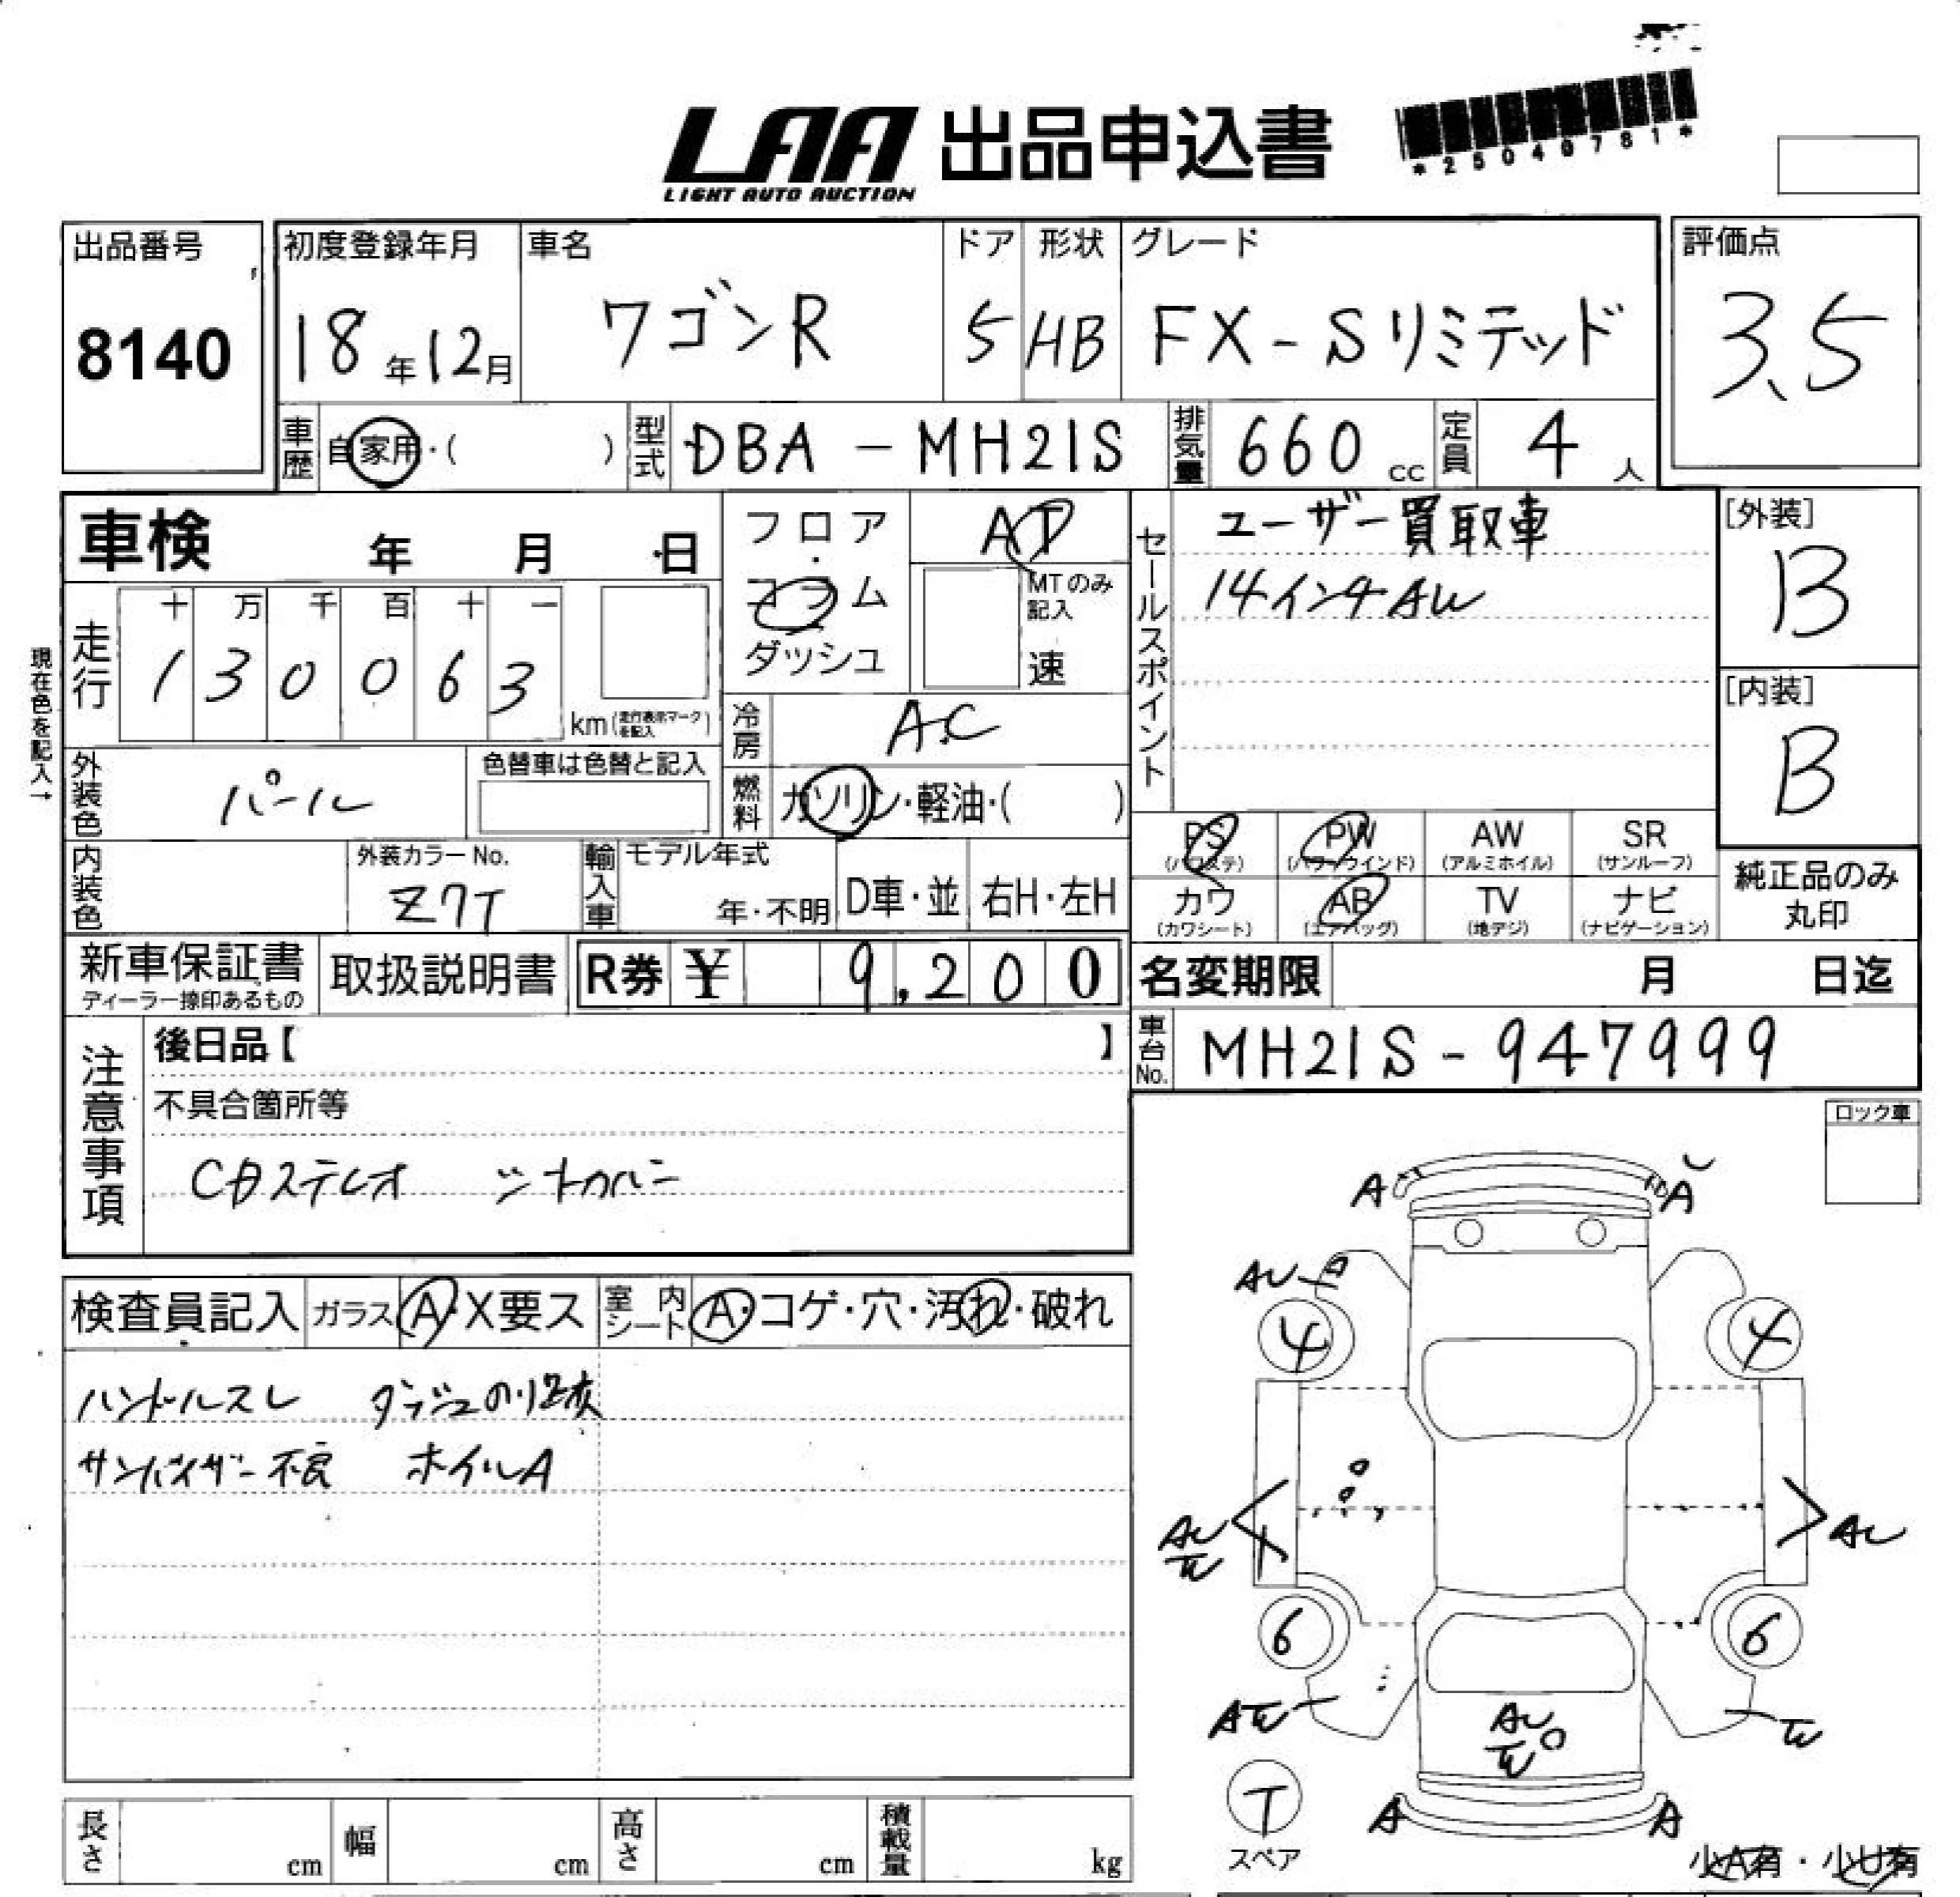 LAA 出品申込書
LIGHT AUTO AUCTION
*25040781*
出品番号
8140
初度登録年月
18年12月
車名
ワゴンR
ドア
5
形状
HB
グレード
FX-Sリミテッド
評価点
3.5
車歴
自家用・( )
型式
DBA-MH21S
排気量
660cc
定員
4人
車検 年 月 日
フロア・コラム
ダッシュ
AT
MTのみ記入
速
セールスポイント
ユーザー買取車
14インチAW
[外装]
B
[内装]
B
現在色を記入→
走行
十 万 千 百 十 一
1 3 0 0 6 3
km(走行表示マークを記入)
冷房
AC
外装色
パール
色替車は色替と記入
燃料
ガソリン・軽油・( )
PS
(パワステ)
PW
(パワーウインド)
AW
(アルミホイル)
SR
(サンルーフ)
カワ
(カワシート)
AB
(エアバッグ)
TV
(地デジ)
ナビ
(ナビゲーション)
純正品のみ
丸印
内装色
外装カラーNo.
Z7T
輸入車
モデル年式
年・不明
D車・並
右H・左H
新車保証書
ディーラー捺印あるもの
取扱説明書
R券 ¥ 9,200
名変期限 月 日迄
車台No.
MH21S-947999
注意事項
後日品【 】
不具合箇所等
CDステレオ シートカバー
ロック車
検査員記入
ガラス A・X要ス
室内シート A・コゲ・穴・汚れ・破れ
ハンドルスレ ダッシュのり跡
サンバイザー不良 ホイルA
A A
AU
4 4
AU
AU
6 6
AU
T
スペア
A A
小A有・小U有
長さ cm
幅 cm
高さ cm
積載量 kg